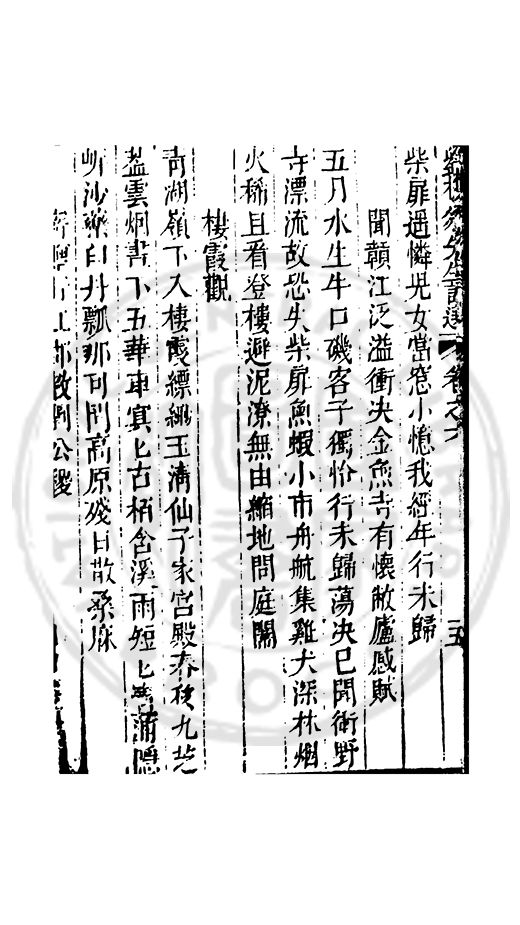 柴扉遥憐兒女當窓小憶我經年行未歸
聞贛江泛溢衝決金魚寺有懷敝廬感賦
五月水生牛口磯客子獨怡行未歸蕩決已聞衝野
寺漂流故恐失柴扉魚蝦小市舟航集雞犬深林烟
火稀且看登樓避泥潦無由縮地問庭闈
棲霞觀
青湖嶺下入棲霞縹緲玉清仙子家宮殿春夜九芝
蓋雲烟書下五華車寘上古栢含溪雨短上蒲隱
沙藥臼丹瓢那可問高原殘日散桑麻
公